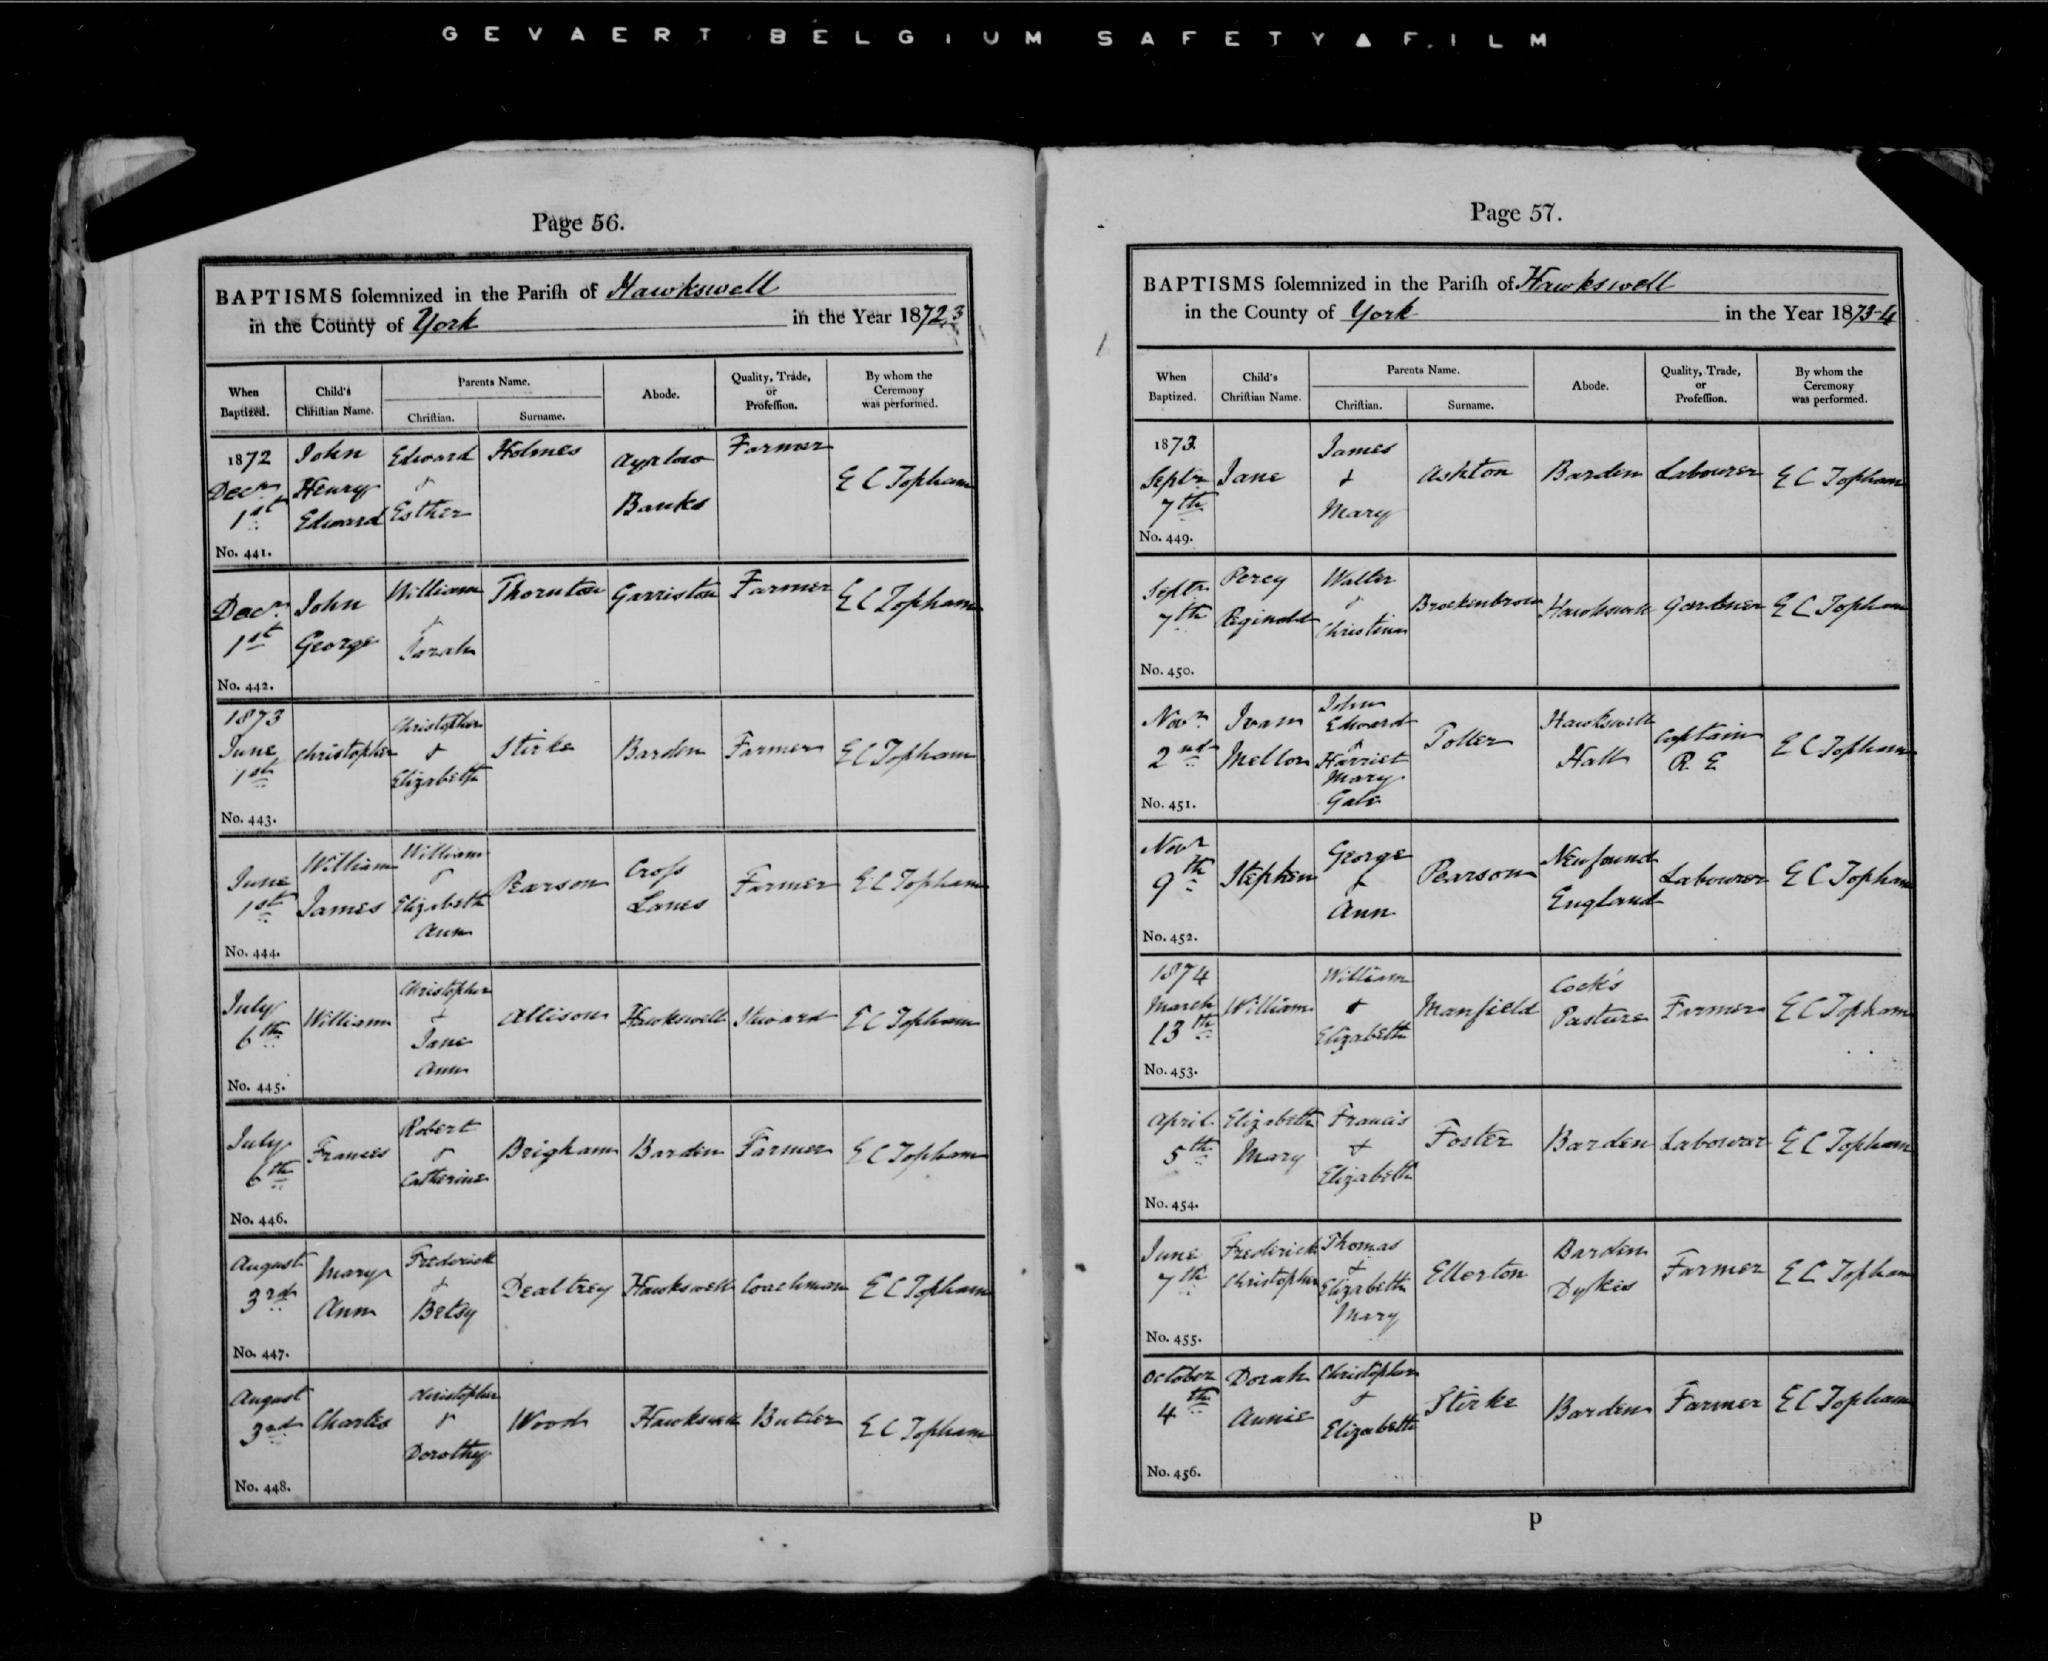 GEVAERT BELGIUM SAFETY▲FILM
Page 56.
BAPTISMS ſolemnized in the Pariſh of Hawkswell
in the County of York in the Year 1872,3
When Baptized.
Child's Chriſtian Name.
Parents Name.
Chriſtian.
Surname.
Abode.
Quality, Trade, or Profeſſion.
By whom the Ceremony was performed.
1872 Decr 1st
John Henry Edward
Edward & Esther
Holmes
Banks
Farmer
E C Topham
No. 441.
Decr 1st
John George
William & Sarah
Thornton
Garriston
Farmer
E C Topham
No. 442.
1873 June 1st
Christopher
Christopher & Elizabeth
Stirke
Barden
Farmer
E C Topham
No. 443.
June 1st
William James
William & Elizabeth Ann
Pearson
Croſs Lanes
Farmer
E C Topham
No. 444.
July 6th
William
Christopher & Jane Ann
Allison
Hawkswell
Steward
E C Topham
No. 445.
July 6th
Frances
Robert & Catherine
Brigham
Barden
Farmer
E C Topham
No. 446.
August 3rd
Mary Ann
Frederick & Betsy
Dealtrey
Hawkswell
Coachman
E C Topham
No. 447.
August 3rd
Charles
Christopher & Dorothy
Wood
Hawkswell
Butler
E C Topham
No. 448.
Page 57.
BAPTISMS ſolemnized in the Pariſh of Hawkswell
in the County of York in the Year 1873-4
When Baptized.
Child's Chriſtian Name.
Parents Name.
Chriſtian.
Surname.
Abode.
Quality, Trade, or Profeſſion.
By whom the Ceremony was performed.
1873 Septr 7th
Jane
James & Mary
Ashton
Barden
Labourer
E C Topham
No. 449.
Septr 7th
Percy Reginald
Walter & Christina
Hawkswell
Gardener
E C Topham
No. 450.
Novr 2nd
Ivan Mellor
John Edward & Harriet Mary Gale
Hawkswell Hall
Captain R. E
E C Topham
No. 451.
Novr 9th
Stephen
George & Ann
Pearson
Newfound England
Labourer
E C Topham
No. 452.
1874 March 13th
William
William & Elizabeth
Manfield
Cock's Pasture
Farmer
E C Topham
No. 453.
April 5th
Elizabeth Mary
Francis & Elizabeth
Foster
Barden
Labourer
E C Topham
No. 454.
June 7th
Frederick Christopher
Thomas & Elizabeth Mary
Ellerton
Barden Dykes
Farmer
E C Topham
No. 455.
October 4th
Dorah Annie
Christopher & Elizabeth
Stirke
Barden
Farmer
E C Topham
No. 456.
P